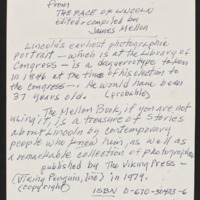 From
THE FACE OF LINCOLN
edited & compiled by
James Mellon
Lincoln's earliest photographic
portrait — which is at the Library of
Congress — is a daguerrotype taken
in 1846 at the time of his election to
the Congress. He would have been
37 years old. (probable)
The Mellon Book, if you are not
using it, is a treasure of stories
about Lincoln by contemporary
people who knew him, as well as
a remarkable collection of photographs
published by The Viking Press
(Viking Penguin, Inc) in 1979.
(copyright)
ISBN 0-670-30433-6